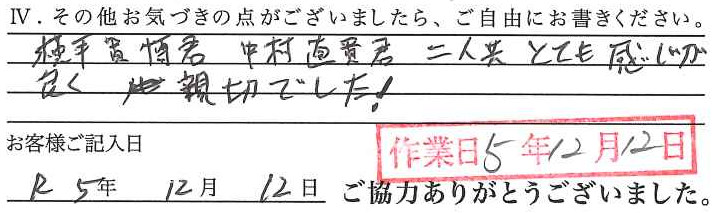 Ⅳ．その他お気づきの点がございましたら、ご自由にお書きください。
中村直貴君 二人共 とても 感じが
良く 親切でした！
お客様ご記入日
作業日 5年12月12日
R 5年 12月 12日 ご協力ありがとうございました。